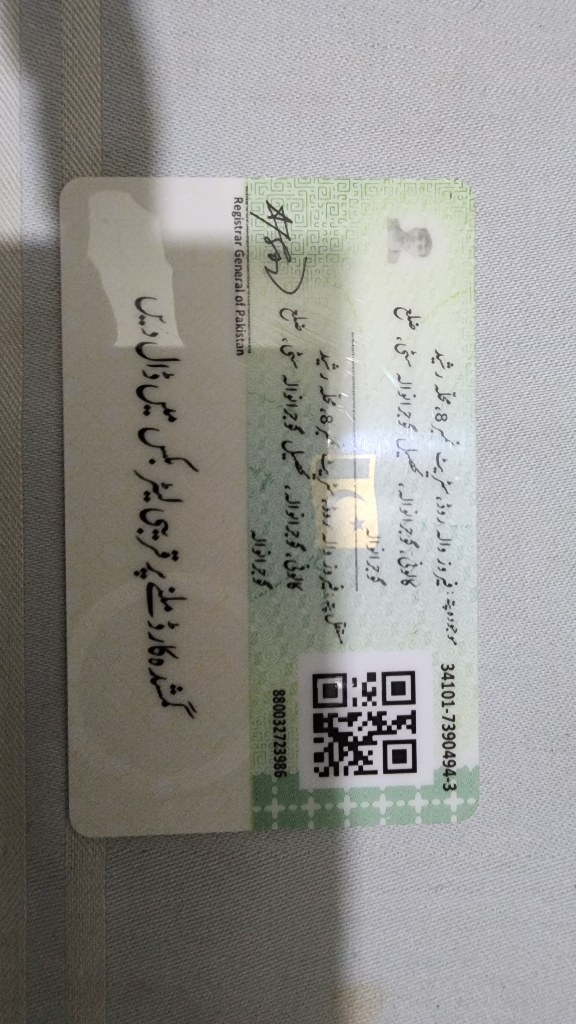 34101-7390494-3
موجودہ پتہ: فیروز والہ روڈ، سٹریٹ نمبر 8، محلہ رشید
کالونی، گوجرانوالہ، تحصیل گوجرانوالہ سٹی، ضلع
گوجرانوالہ
مستقل پتہ: فیروز والہ روڈ، سٹریٹ نمبر 8، محلہ رشید
کالونی، گوجرانوالہ، تحصیل گوجرانوالہ سٹی، ضلع
گوجرانوالہ
880032723986
Registrar General of Pakistan
گمشدہ کارڈ ملنے پر قریبی لیٹر بکس میں ڈال دیں